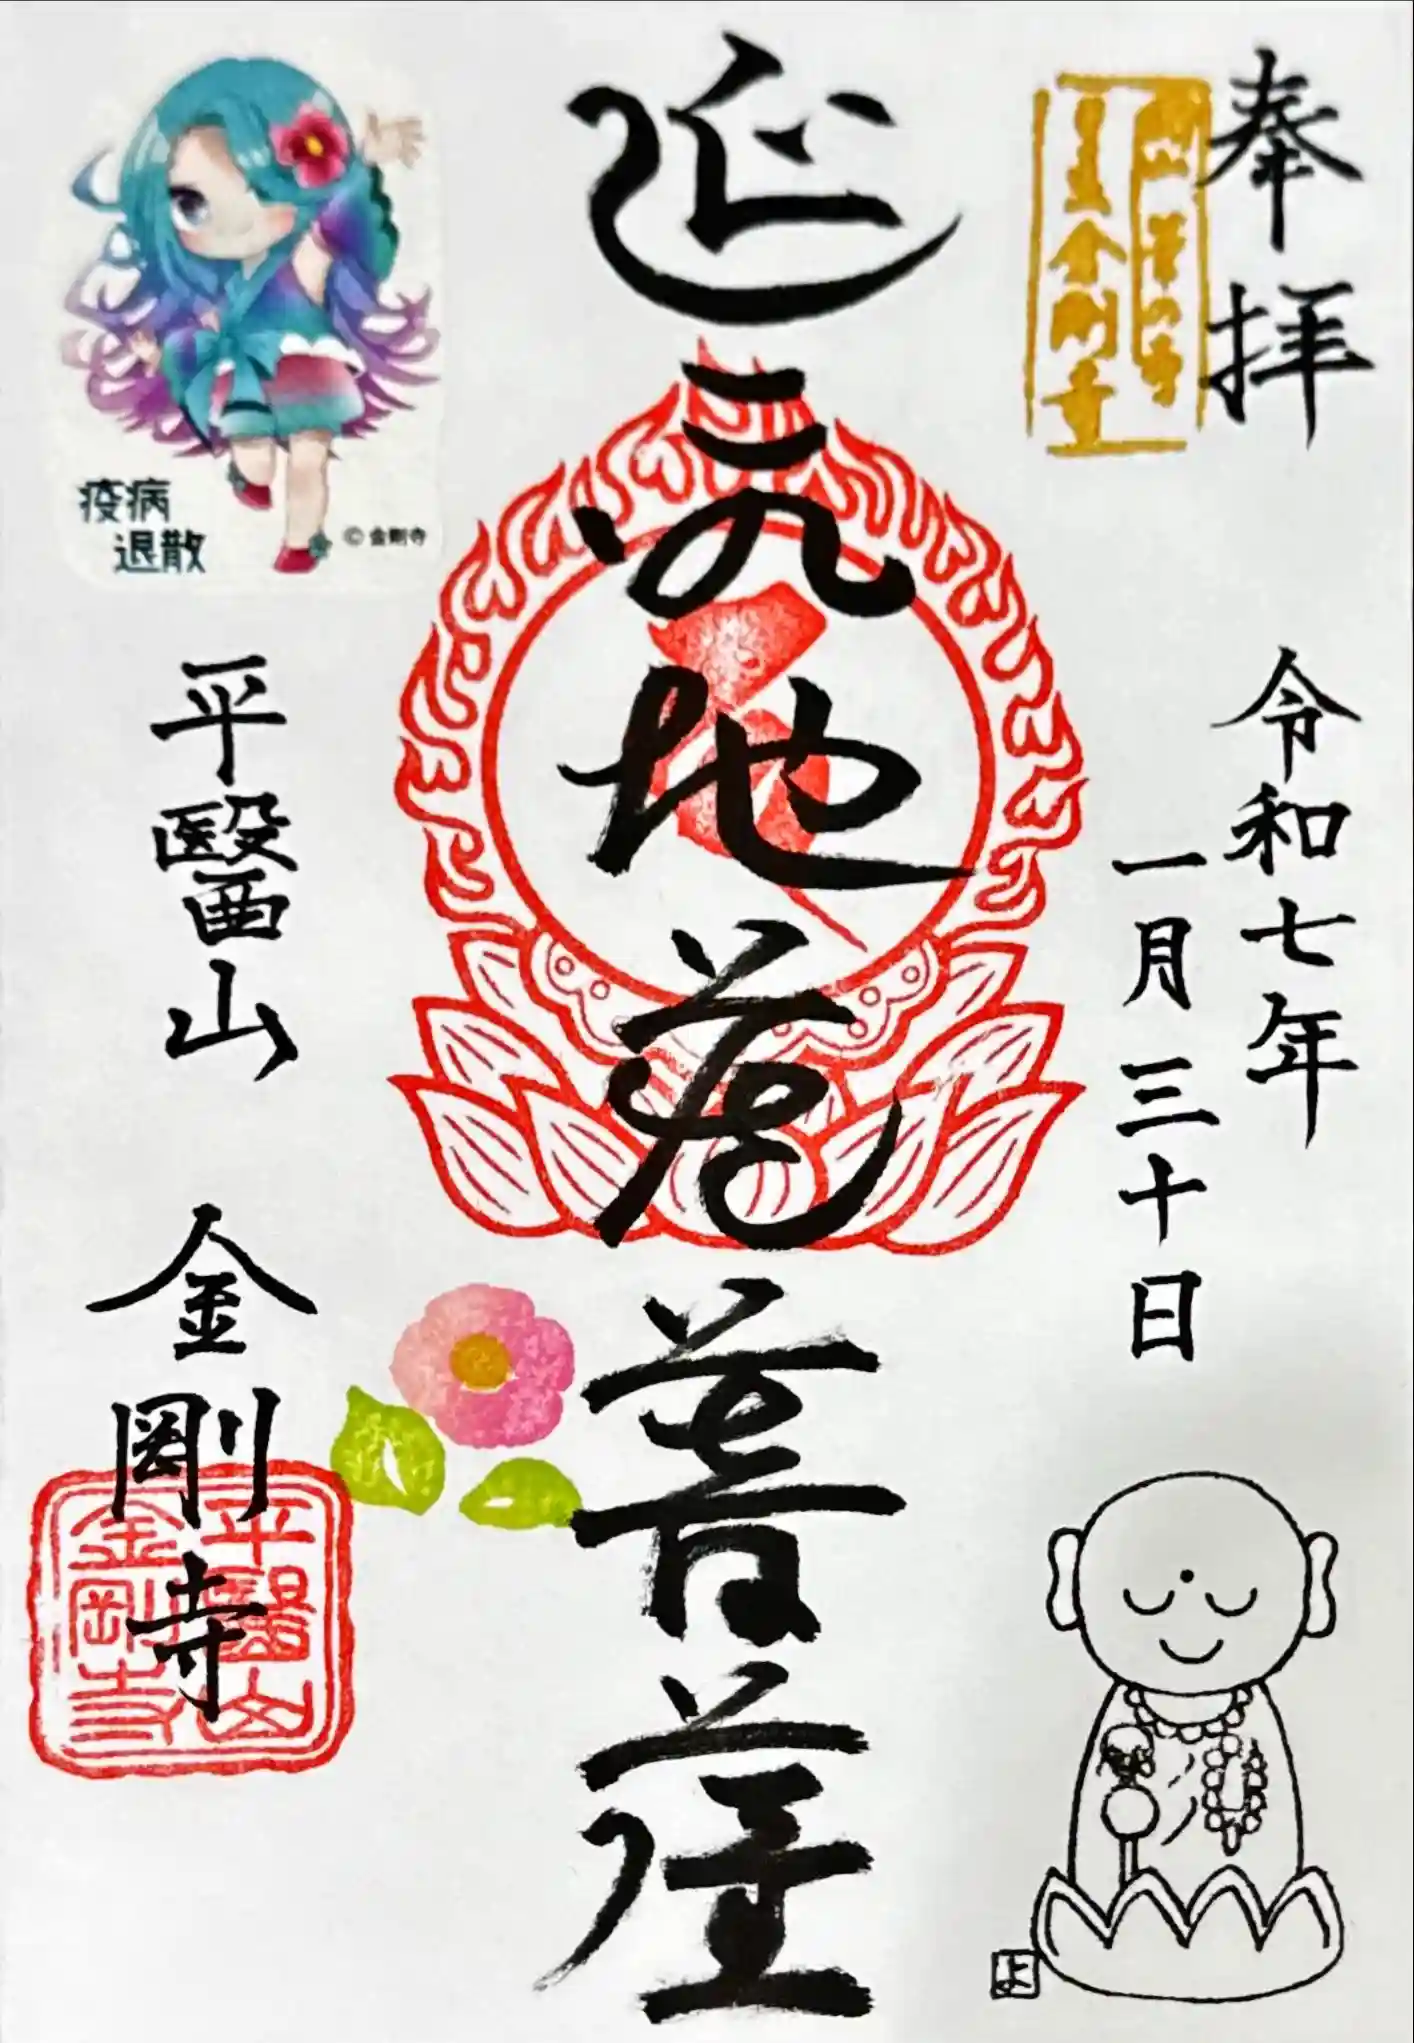 奉拝
金剛寺
令和七年
一月三十日
延命地蔵菩薩
疫病
退散
© 金剛寺
平醫山 金剛寺
平醫山
金剛寺
よ